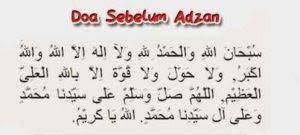 Doa Sebelum Adzan
سُبْحَانَ اللهِ وَالْحَمْدُ لِلهِ وَلاَ إِلهَ إِلاَّ اللهُ وَاللهُ
اَكْبَرُ, وَلاَ حَوْلَ وَلاَ قُوَّةَ إِلاَّ بِاللهِ الْعَلِىِّ
الْعَظِيْمِ, اَللّهُمَّ صَلِّ وَسَلِّمْ عَلَى سَيِّدِنَا مُحَمَّدٍ
وَعَلَى آلِ سَيِّدِنَا مُحَمَّدٍ. اَللهُ يَا كَرِيْمُ.